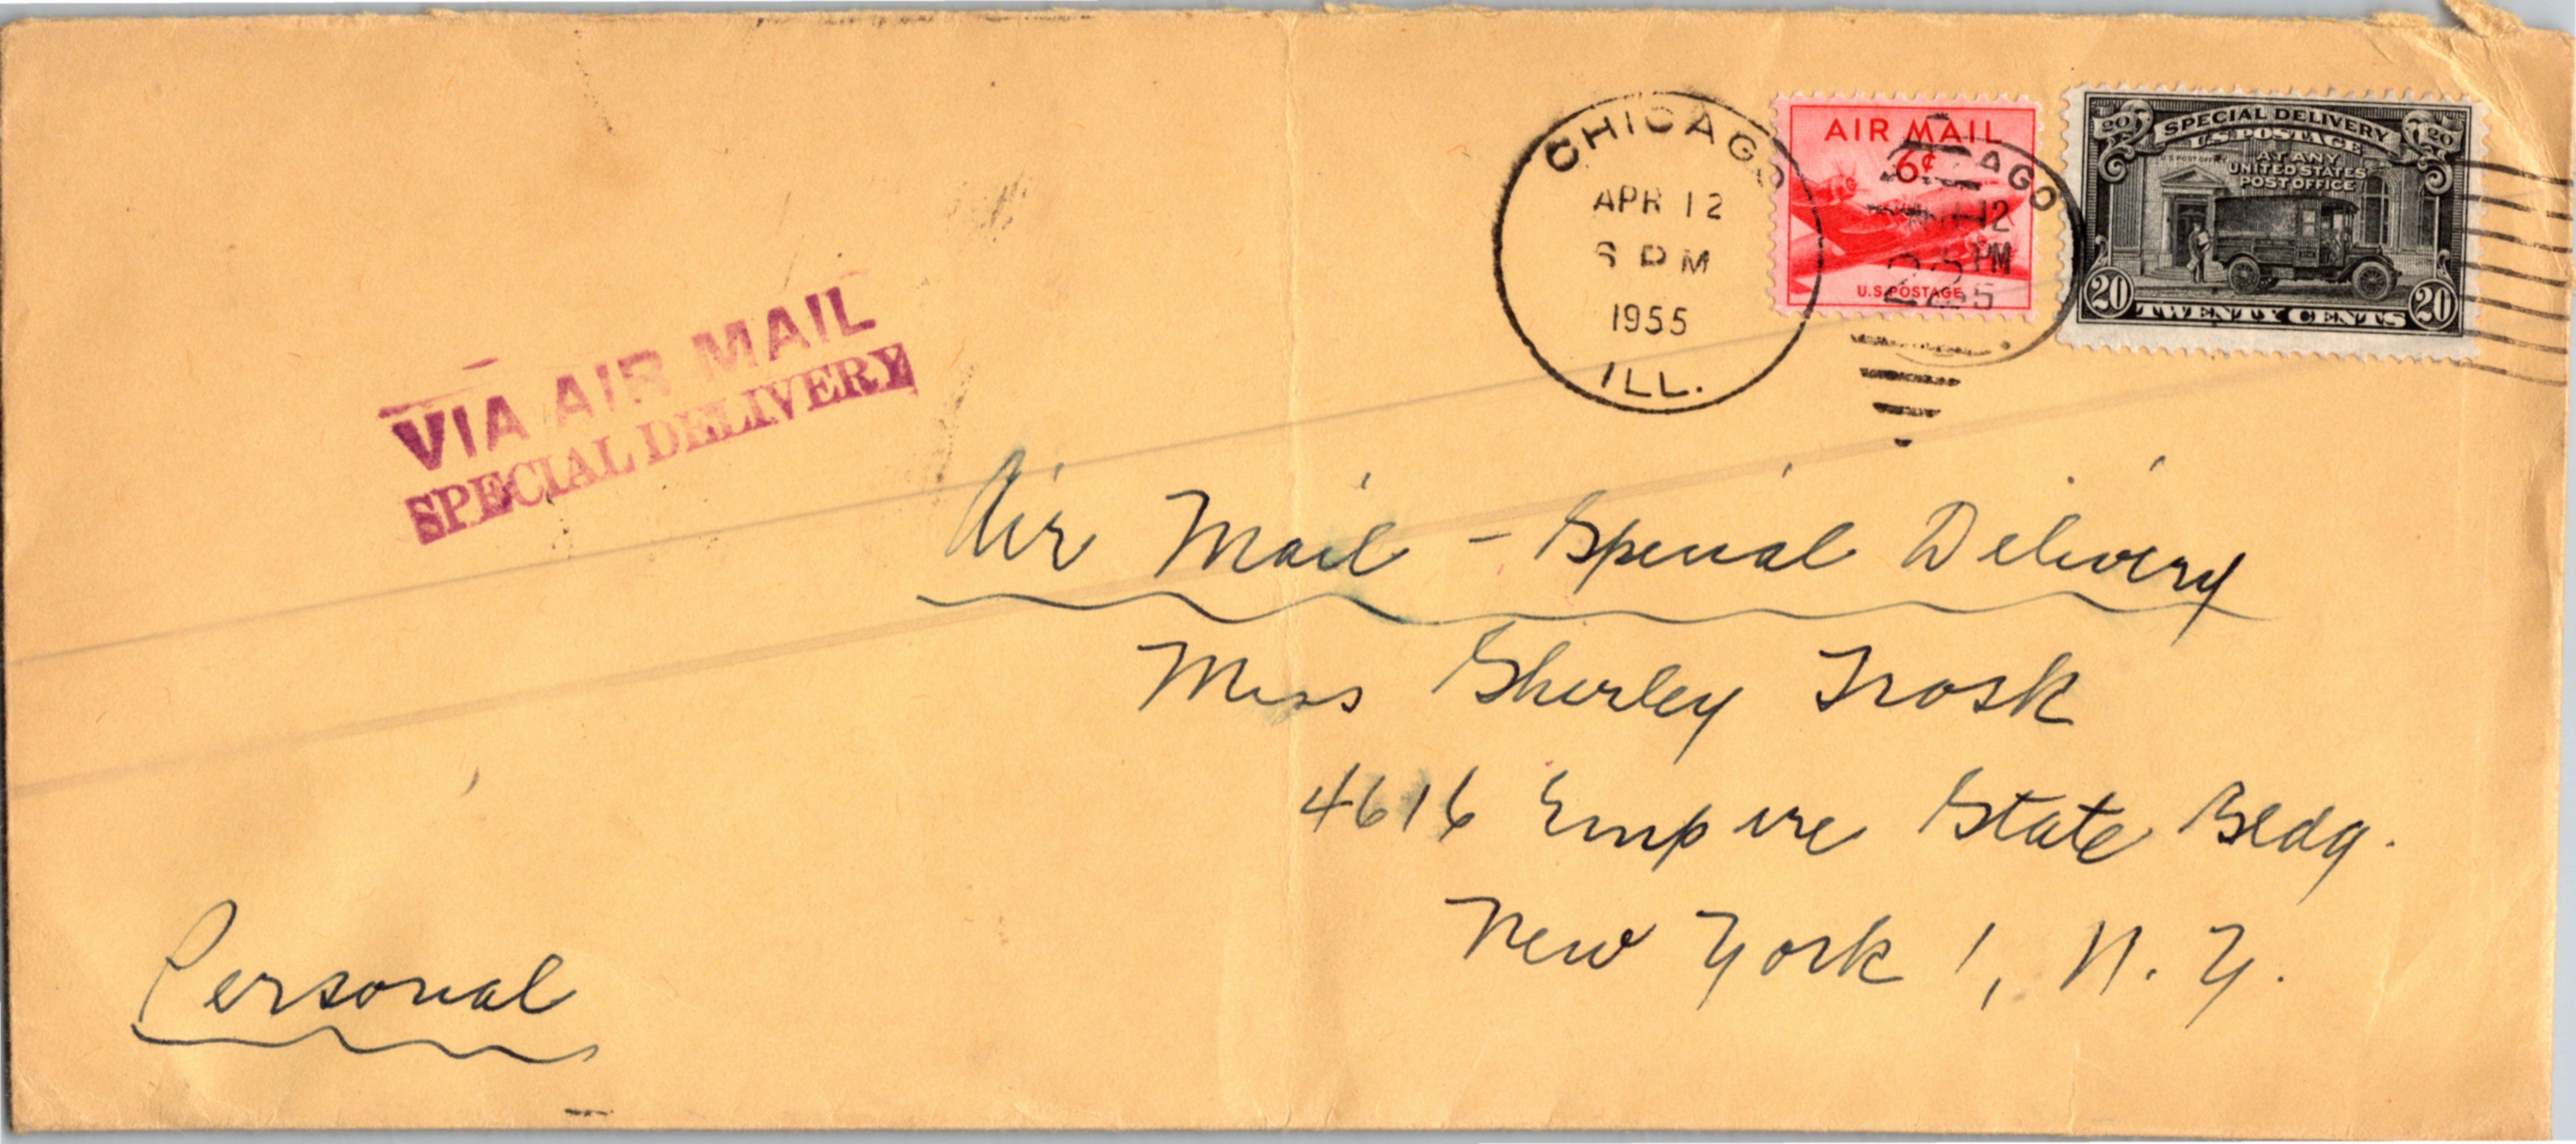 CHICAGO
APR 12
6 PM
1955
ILL.
AIR MAIL
6¢
U.S. POSTAGE
AGO
12
PM
20 SPECIAL DELIVERY 20
U.S. POSTAGE
U S POST OFFICE
AT ANY
UNITED STATES
POST OFFICE
20 TWENTY CENTS 20
VIA AIR MAIL
SPECIAL DELIVERY
Air Mail - Special Delivery
Miss Shirley Trosk
4616 Empire State Bldg.
New York 1, N. Y.
Personal